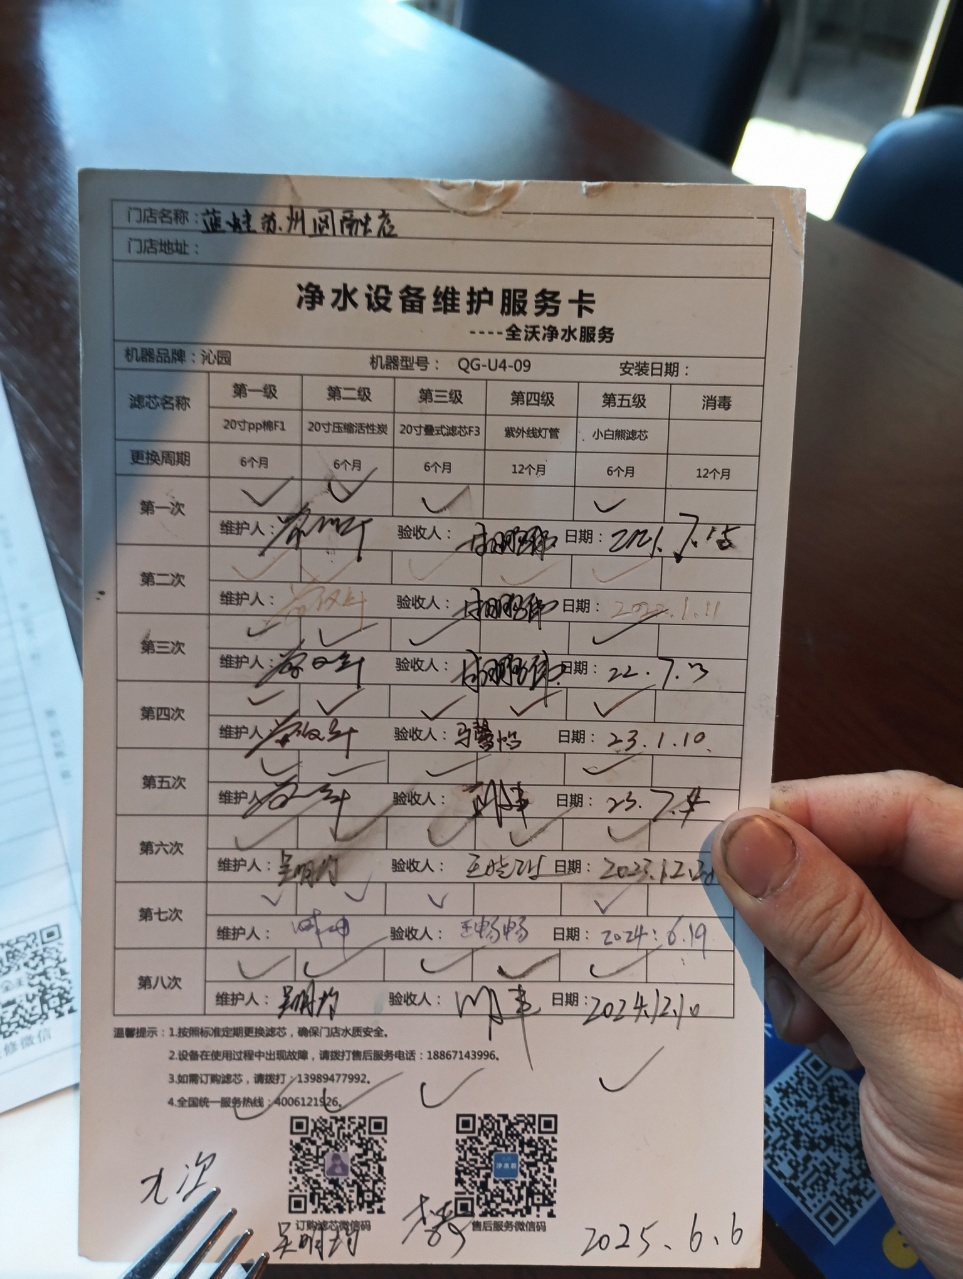 门店名称：蓝蛙苏州圆融店
门店地址：
净水设备维护服务卡
----全沃净水服务
机器品牌：沁园 机器型号： QG-U4-09 安装日期：
滤芯名称 第一级 第二级 第三级 第四级 第五级 消毒
20寸pp棉F1 20寸压缩活性炭 20寸叠式滤芯F3 紫外线灯管 小白熊滤芯
更换周期 6个月 6个月 6个月 12个月 6个月 12个月
第一次 ✓ ✓ ✓ ✓
维护人： 验收人： 日期：2021.7.15
第二次 ✓ ✓ ✓ ✓ ✓
维护人： 验收人： 日期：2022.1.11
第三次 ✓ ✓ ✓ ✓
维护人： 验收人： 日期：22.7.3
第四次 ✓ ✓ ✓ ✓ ✓
维护人： 验收人： 日期：23.1.10.
第五次 ✓ ✓ ✓ ✓
维护人： 验收人： 日期：23.7.4
第六次 ✓ ✓ ✓ ✓ ✓
维护人：吴明均 验收人： 日期：2023.12.2
第七次 ✓ ✓ ✓ ✓
维护人： 验收人：王畅畅 日期：2024.6.19
第八次 ✓ ✓ ✓ ✓ ✓
维护人：吴明均 验收人： 日期：2024.12.10
温馨提示：1.按照标准定期更换滤芯，确保门店水质安全。
2.设备在使用过程中出现故障，请拨打售后服务电话：18867143996。
3.如需订购滤芯，请拨打：13989477992。
4.全国统一服务热线：4006121926。
✓ ✓ ✓ ✓
九次
净水器
订购滤芯微信码 售后服务微信码
吴明均 2025.6.6
修微信